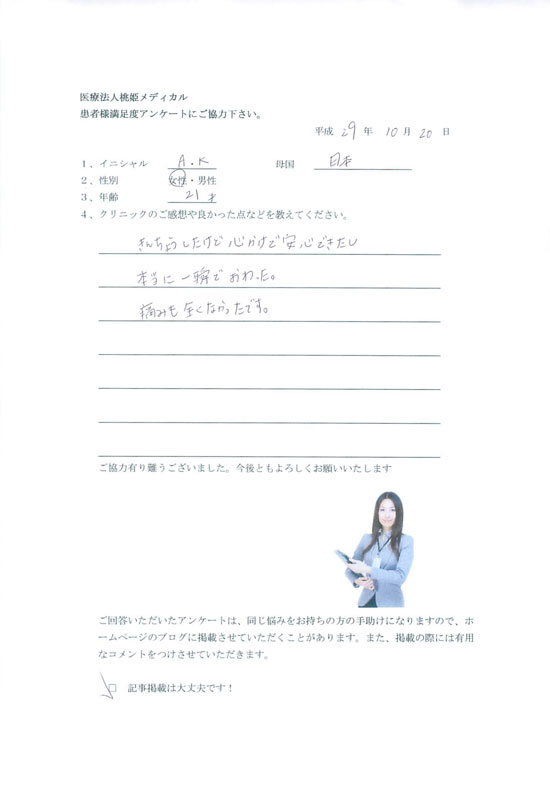 医療法人桃姫メディカル
患者様満足度アンケートにご協力下さい。
平成 29 年 10 月 20 日
1、イニシャル A.K 母国 日本
2、性別 女性・男性
3、年齢 21才
4、クリニックのご感想や良かった点などを教えてください。
きんちょうしたけど 心かけで安心できたし
本当に一瞬でおわった。
痛みも全くなかったです。
ご協力有り難うございました。今後ともよろしくお願いいたします
ご回答いただいたアンケートは、同じ悩みをお持ちの方の手助けになりますので、ホ
ームページのブログに掲載させていただくことがあります。また、掲載の際には有用
なコメントをつけさせていただきます。
□ 記事掲載は大丈夫です！